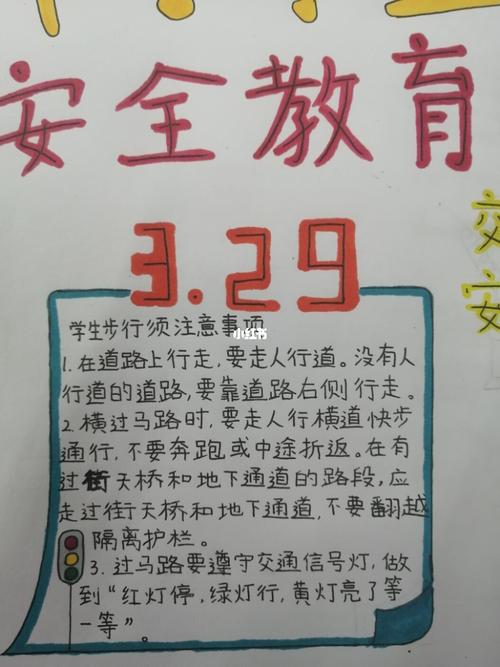 安全教育
3.29
交
安
学生步行须注意事项
小红书
1.在道路上行走,要走人行道。没有人
行道的道路,要靠道路右侧行走。
2.横过马路时,要走人行横道快步
通行,不要奔跑或中途折返。在有
过街天桥和地下通道的路段,应
走过街天桥和地下通道,不要翻越
隔离护栏。
3.过马路要遵守交通信号灯,做
到“红灯停,绿灯行,黄灯亮了等
一等”。